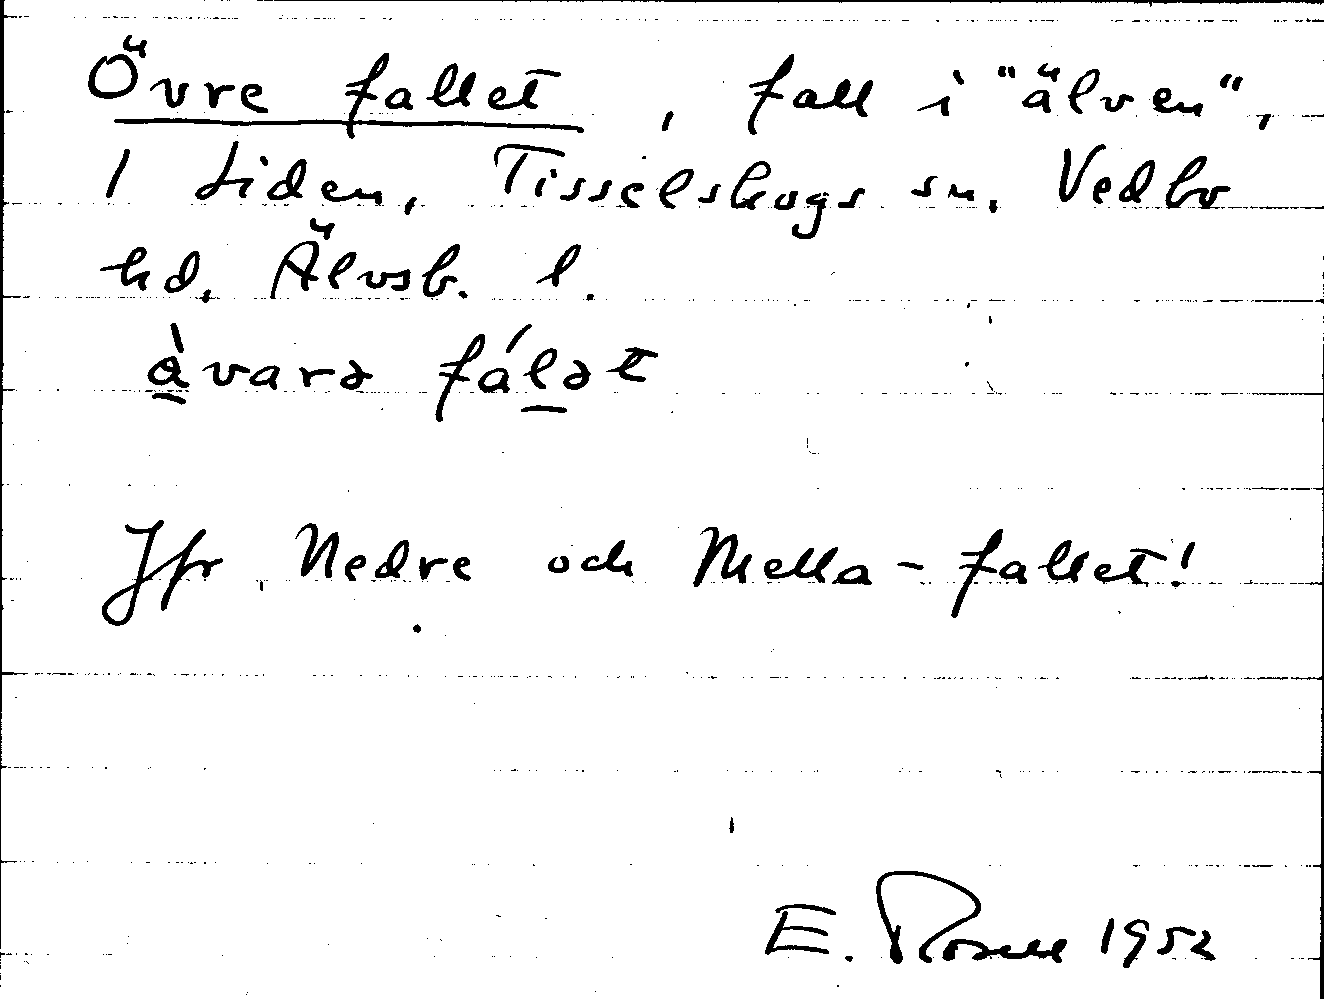 Övre fallet, fall i "älven",
1 Liden, Tisselskogs sn. Vedbo
hd. Älvsb. l.
ȧ̱̀varə fáḻət
Jfr Nedre och Mella-fallet!
E. Rosell 1952